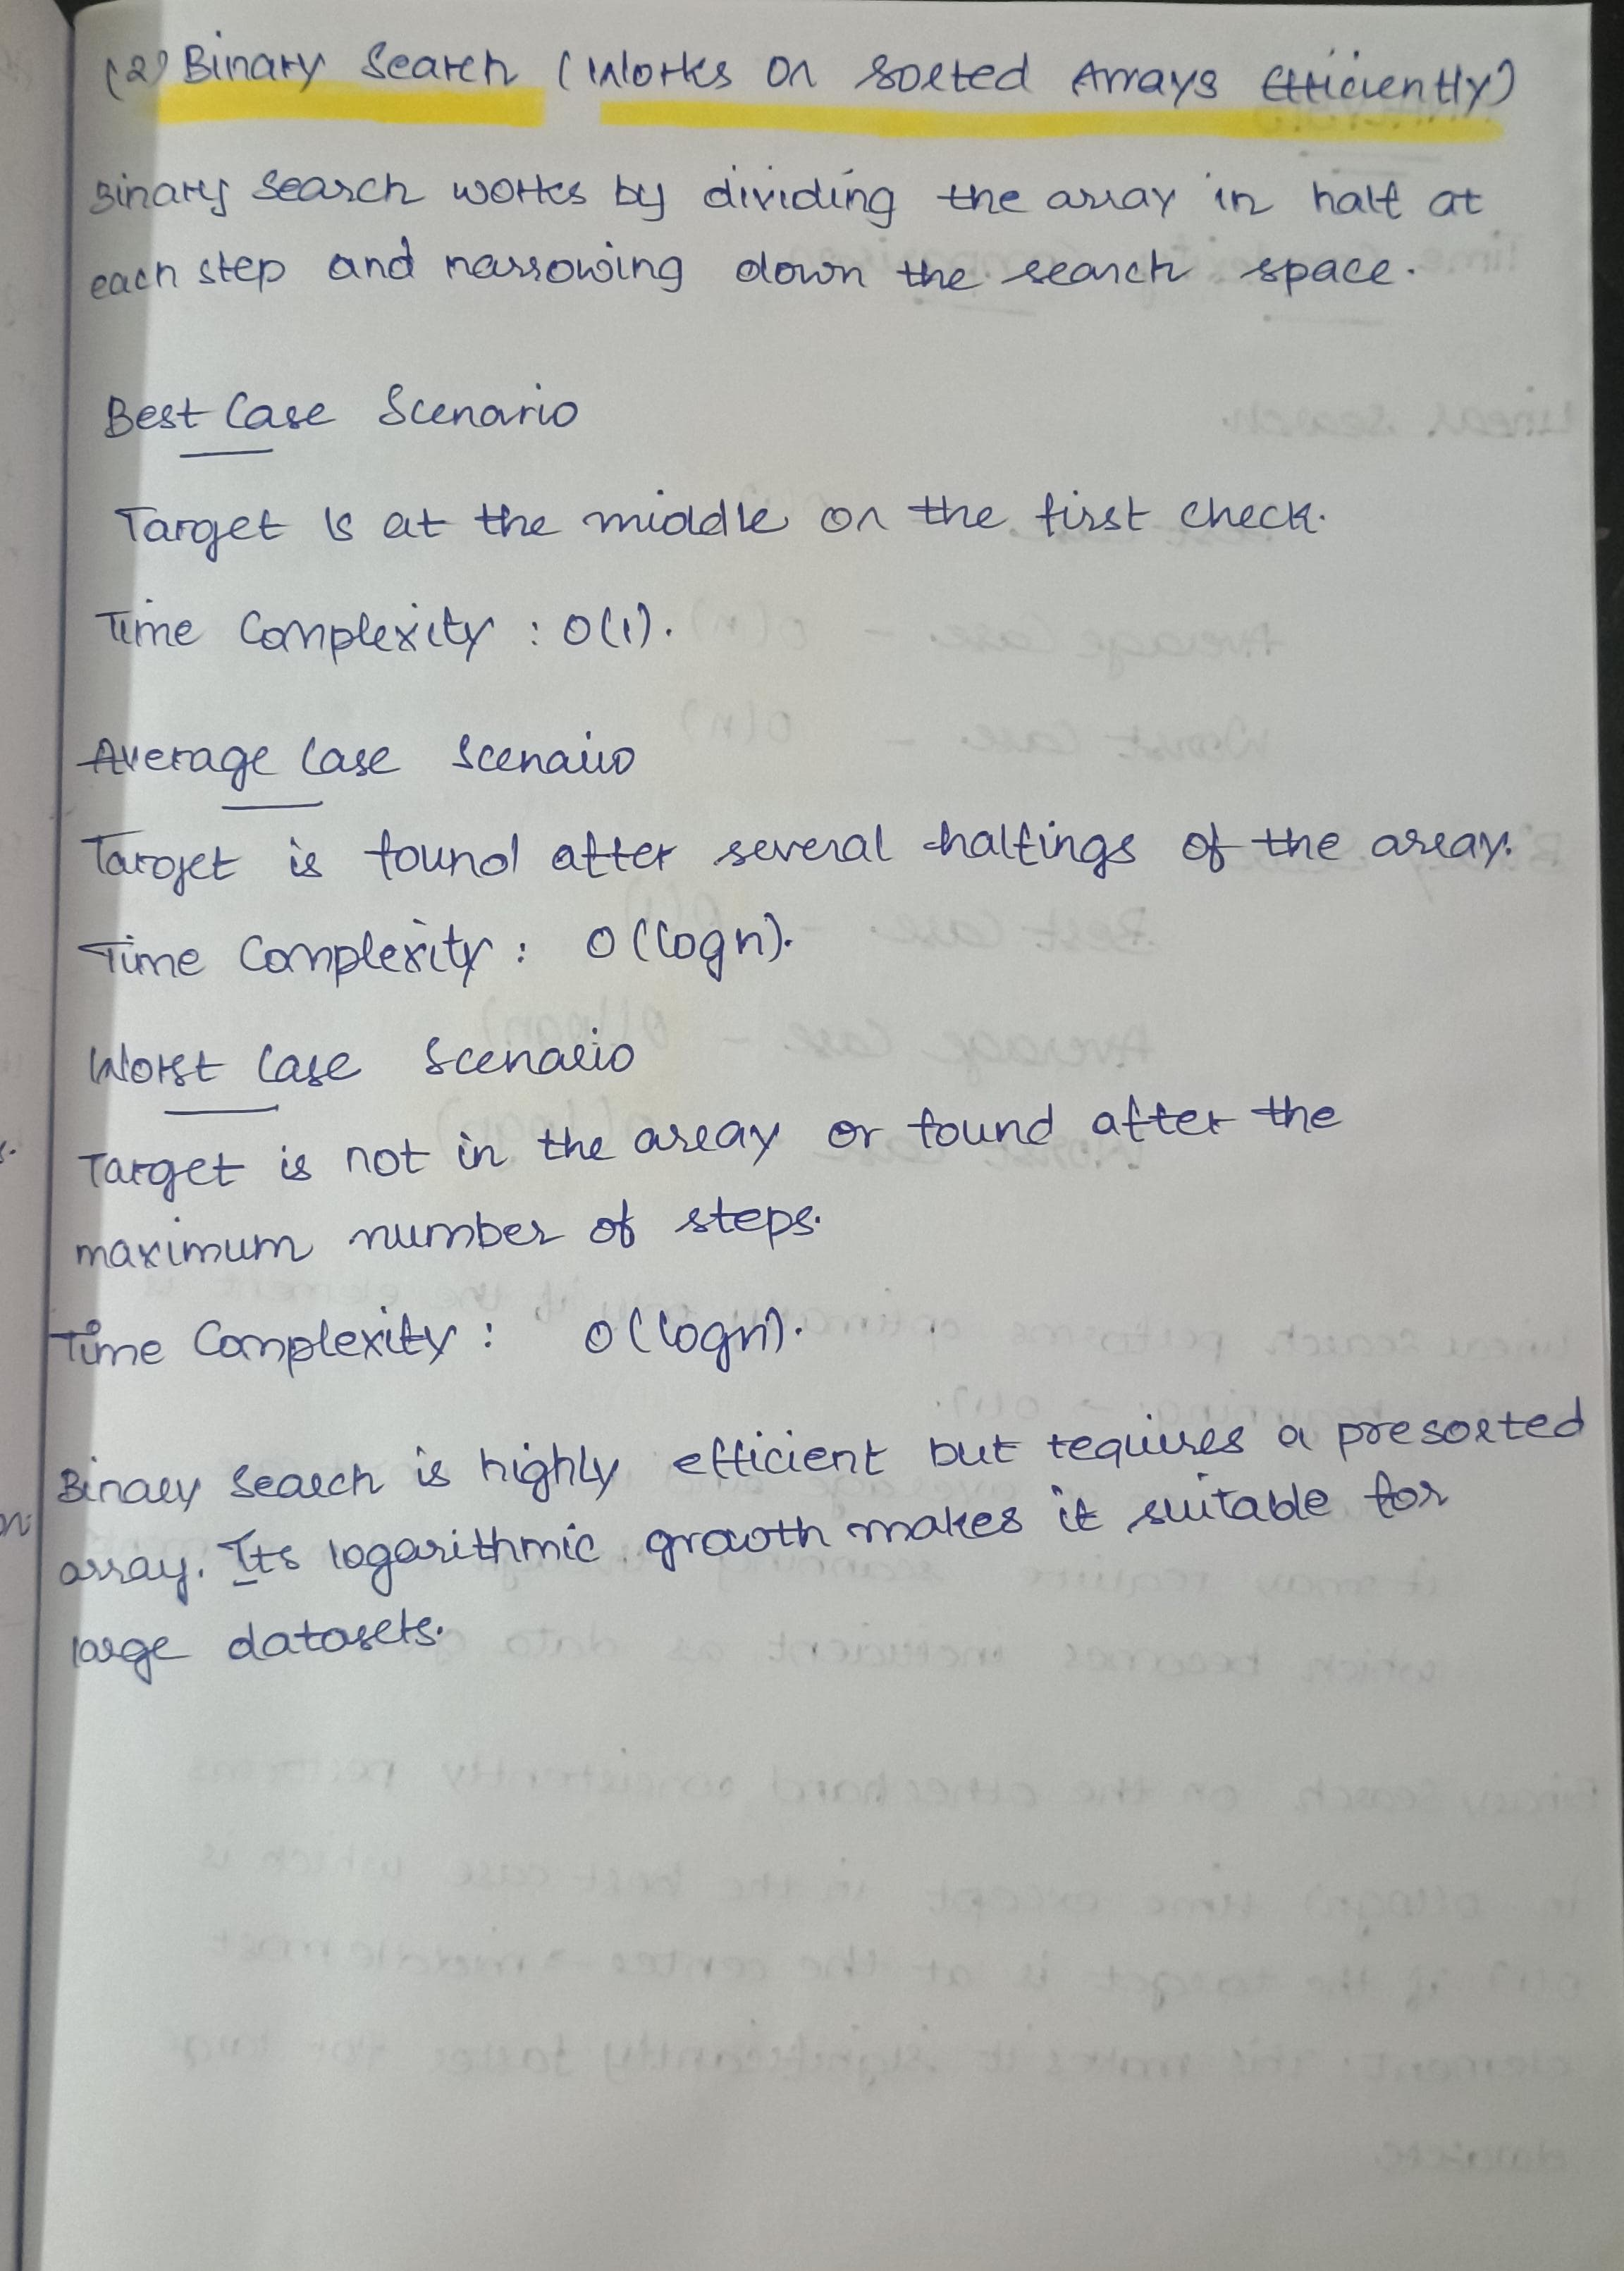 (2) Binary Search (Works on Sorted Arrays Efficiently)
Binary Search works by dividing the array in half at
each step and narrowing down the search space.
Best Case Scenario
Target is at the middle on the first check.
Time Complexity : O(1).
Average Case Scenario
Target is found after several halfings of the array.
Time Complexity : O(logn).
Worst Case Scenario
Target is not in the array or found after the
maximum number of steps.
Time Complexity : O(logn).
Binary Search is highly efficient but requires a presorted
array. Its logarithmic growth makes it suitable for
large datasets.